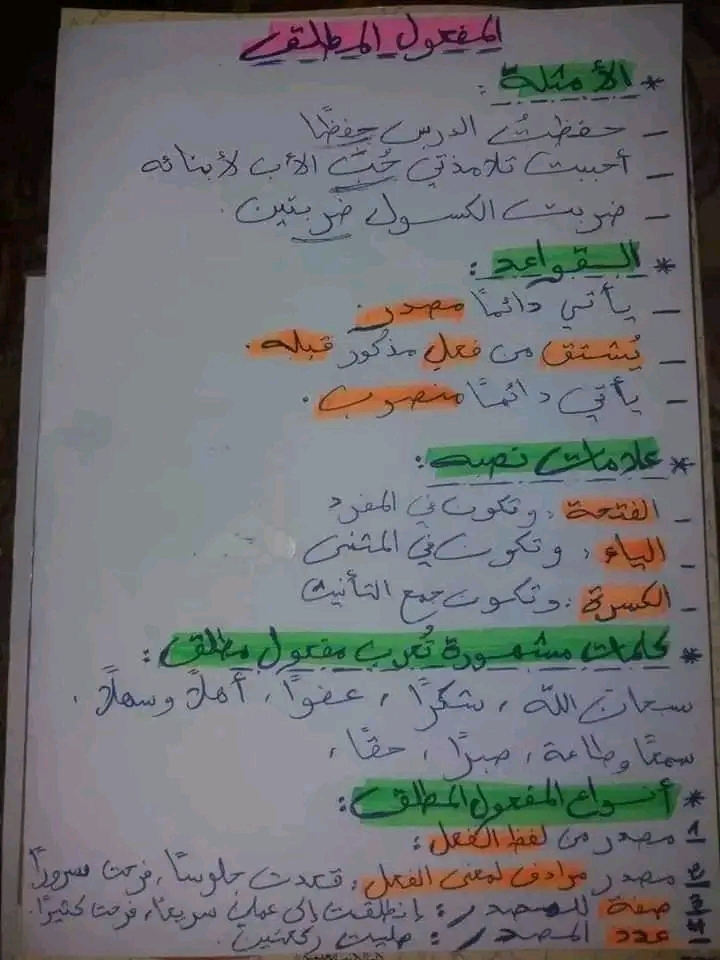 المفعول المطلق
* الأمثلة :
- حفظتُ الدرس حفظًا
- أحببت تلامذتي حُبَّ الأب لأبنائه
- ضربت الكسول ضربتين .
* القواعد :
- يأتي دائمًا مصدر .
- يُشتق من فعل مذكور قبله .
- يأتي دائمًا منصوب .
* علامات نصبه :
- الفتحة : وتكون في المفرد
- الياء : وتكون في المثنى
- الكسرة : وتكون جمع التأنيث
* كلمات مشهورة تُعرب مفعول مطلق :
سبحان الله ، شكرًا ، عفوًا ، أهلاً وسهلاً ،
سمعًا وطاعة ، صبرًا ، حقًا ،
* أنواع المفعول المطلق :
1 مصدر من لفظ الفعل :
2 مصدر مرادف لمعنى الفعل : قعدت جلوسًا ، فرحت سرورًا
3 صفة للمصدر : إنطلقت إلى عملي سريعًا ، فرحت كثيرًا .
4 عدد المصدر : صليت ركعتين .